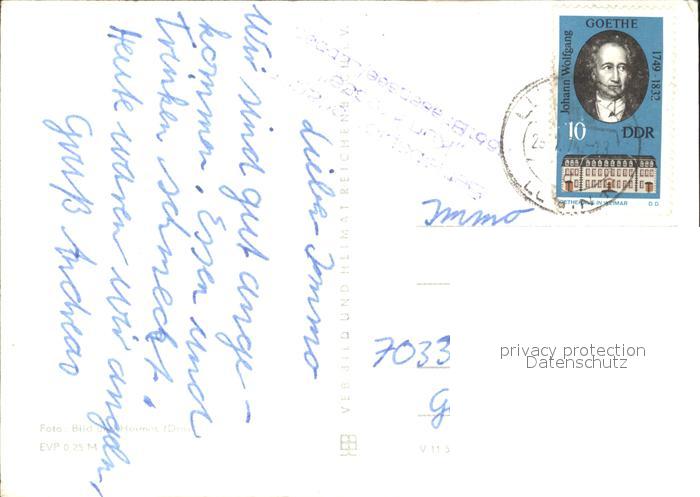 Lieber Immo
Wir sind gut ange-
kommen. Essen und
Trinken schmeckt.
Heute waren wir angeln.
Gruß Andreas
Foto: Bild und Heimat
EVP 0,25 M
VEB BILD UND HEIMAT REICHENBACH I. V.
V 11 5
GOETHE
Johann Wolfgang
1749 · 1832
10 DDR
GOETHEHAUS IN WEIMAR
D.D.
Immo
7033
privacy protection
Datenschutz